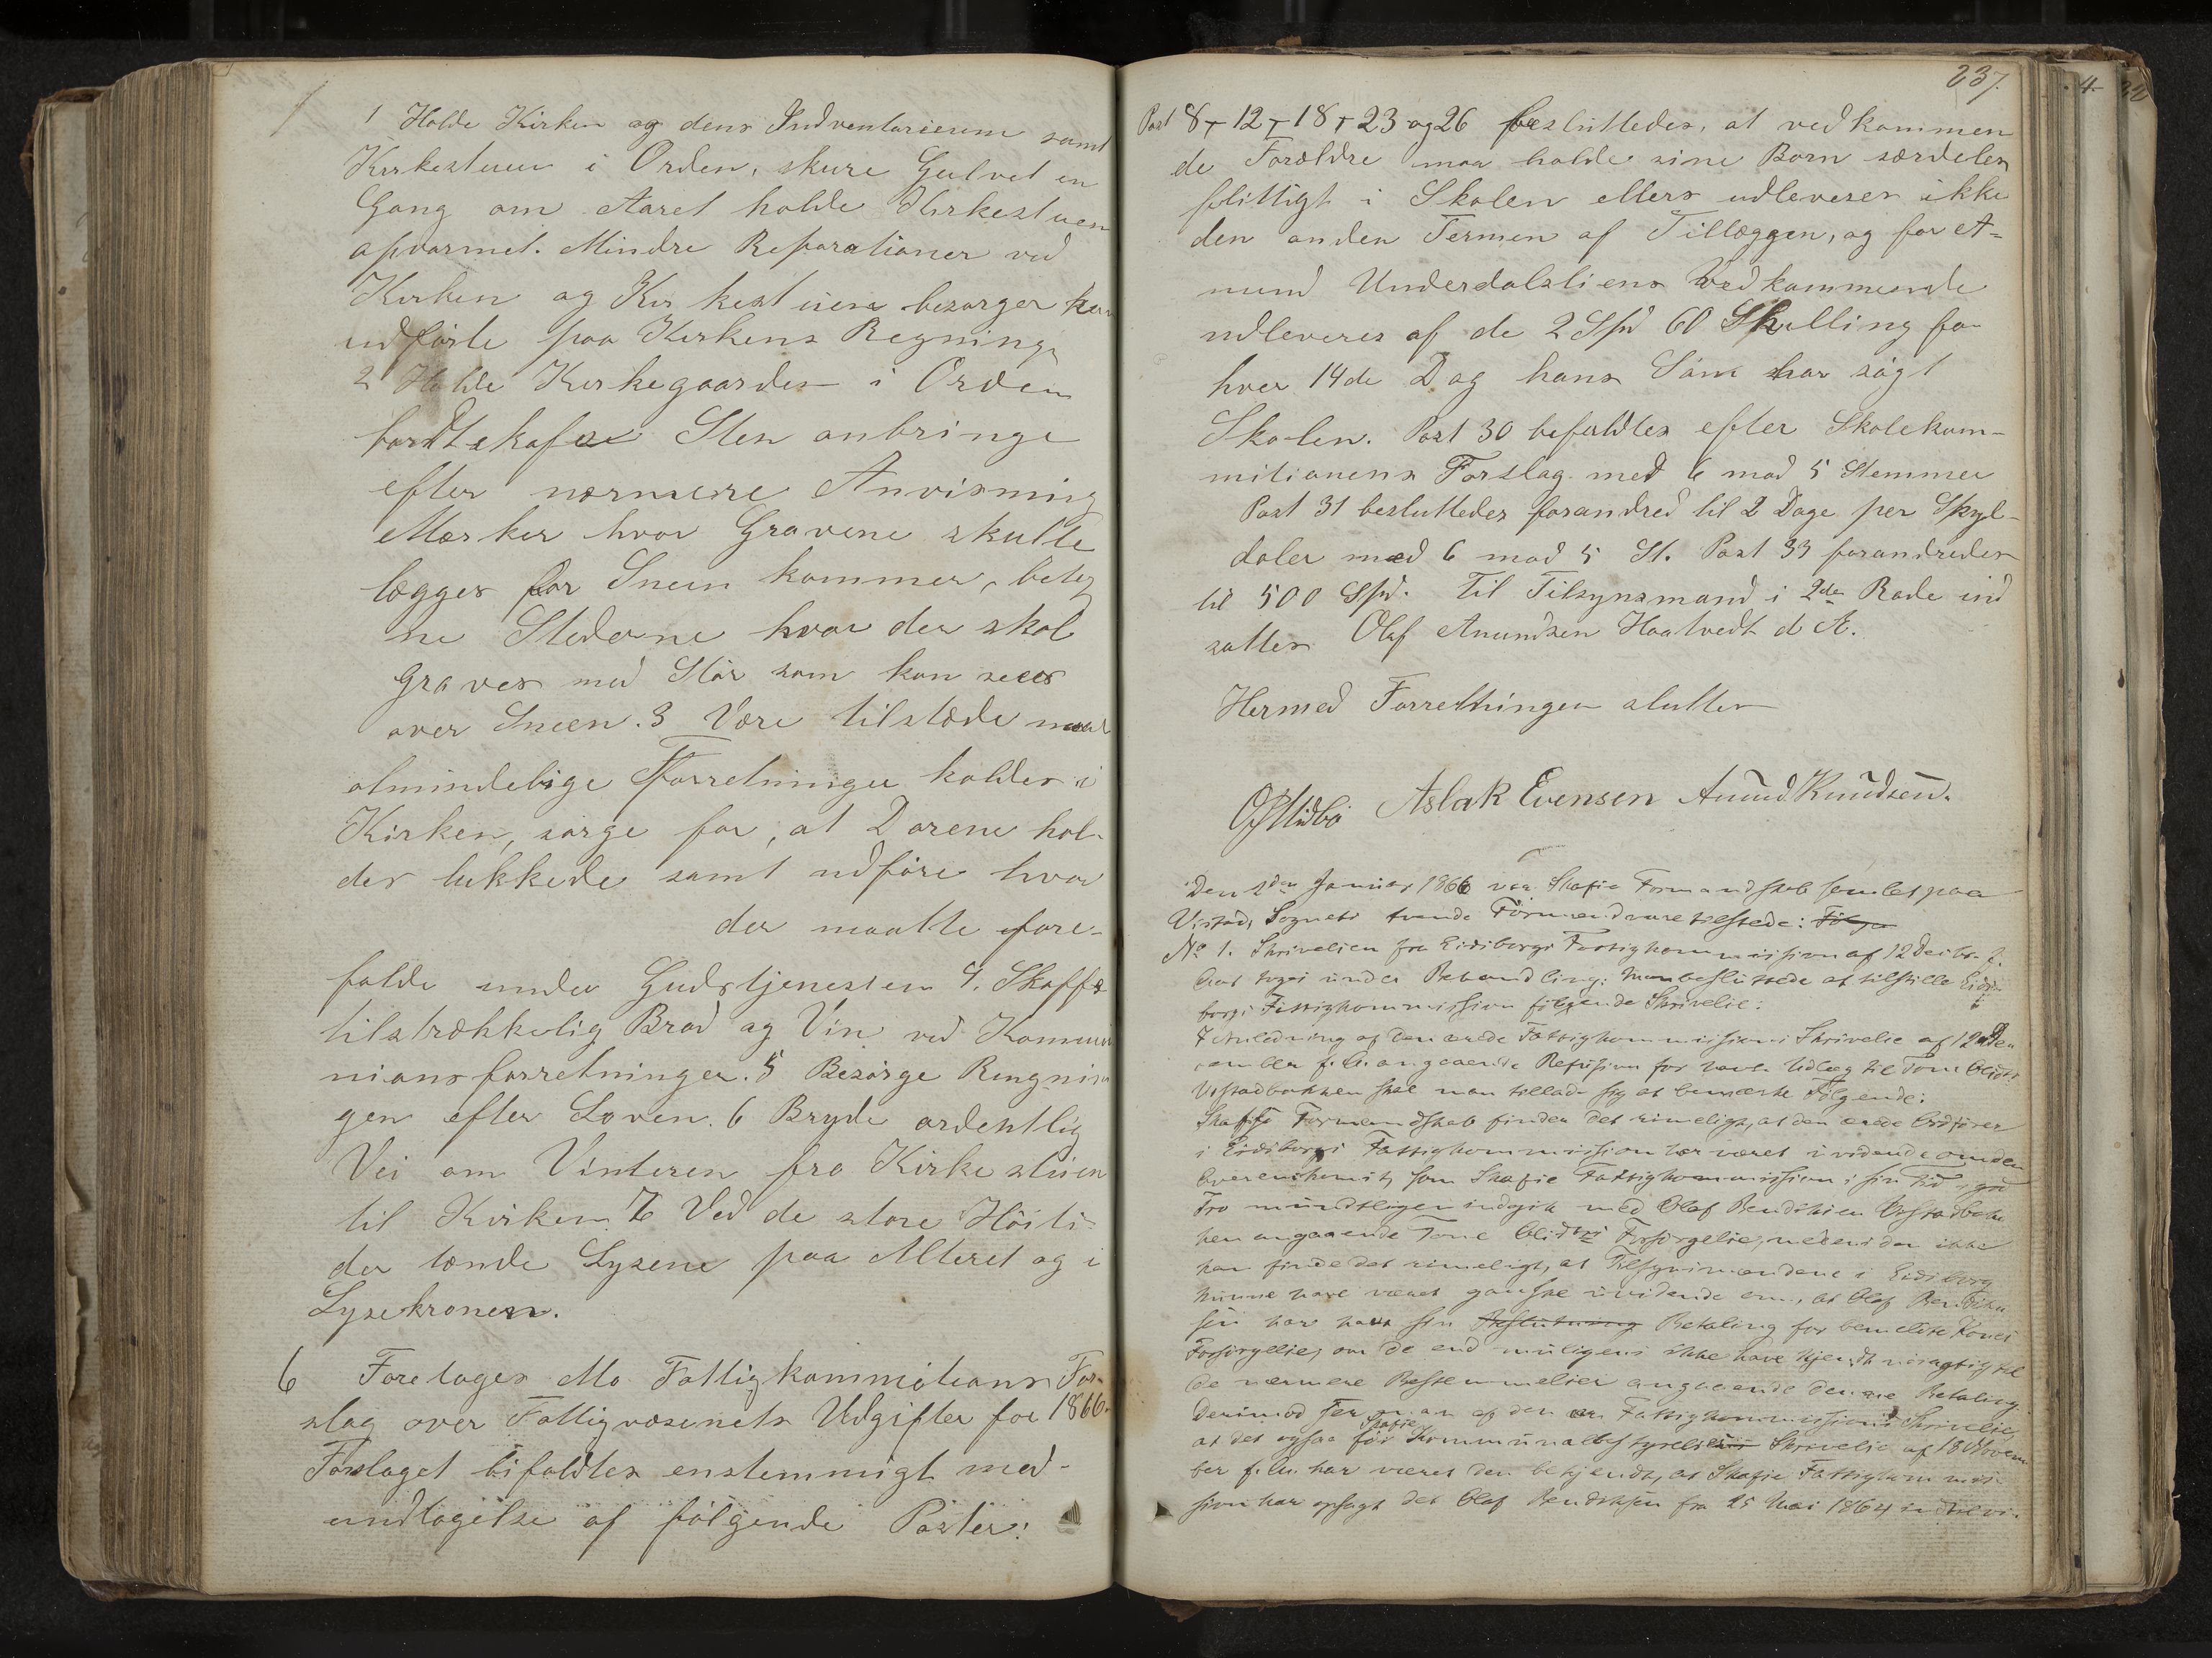 1 Holde Kirken og dens Indventarieum samt
Kirkestuen i Orden, skure Gulvet en
Gang om Aaret holde Kirkestuen
opvarmet. Mindre Reparationer ved
Kirken og Kirkestuen besørger han
udførte paa Kirkens Regning,
2 Holde Kirkegaarden i Orden
bortskafe Sten anbringe
efter nærmere Anvisning
Mærker hvor Gravene skulle
lægges før Sneen kommer, beteg
ne Stederne hvor der skal
graves med Stør som kan sees
over Sneen. 3 Være tilstæde naar
almindelige Forretninger holdes i
Kirken, sørge for, at Dørene hol-
des lukkede samt udføre hvad
der maatte fore-
falde under Gudstjenesten 4. Skaffe
tilstrækkelig Brød og Vin ved Kommu
nionsforretninger. 5 Besørge Ringnin
gen efter Loven. 6 Bryde ordentlig
Vei om Vinteren fra Kirkestuen
til Kirken. 7 Ved de store Høiti-
der tænde Lysene paa Alteret og i
Lysekronen.
6 Foretoges Mo Fattigkommitions For-
slag over Fattigvæsenets Udgifter for 1866.
Forslaget bifaldtes enstemmigt med-
undtagelse af følgende Poster:
237.
Post 8 + 12 + 18 + 23 og 26 besluttedes, at vedkommen
de Forældre maa holde sine Børn særdeles
flittigt i Skolen ellers udleveres ikke
den anden Termin af Tillæggen, og for A-
mund Underdalsliens Vedkommende
udleveres af de 2 Spd 60 Skilling for
hver 14de Dag hans Søn har søgt
Skolen. Post 30 befaldtes efter Skolekom-
mitionens Forslag med 6 mod 5 Stemmer
Post 31 besluttedes forandred til 2 Dage per Skyl-
daler med 6 mod 5 St. Post 33 forandredes
til 500 Spd. Til Tilsynsmand i 2den Rode ind
sattes Olaf Anundsen Haatvedt d Æ.
Hermed Forretningen slutter
Aslak Evensen Anund Knudsen.
Den 2den Januar 1866 var Skafse Formandskab samlet paa
Vistad, Sognets tvende Formænd vare tilstede: Følge
No 1. Skrivelsen fra Eidsborgs Fattigkommission af 12 Decbr f.
Aar toges under Behandling: Man besluttede at tilstille Eids-
borgs Fattigkommission følgende Skrivelse:
I Anledning af den ærede Fattigkommissions Skrivelse af 12 Dec
ember f. A. angaaende Refusion for havte Udlæg til Tone
skal man tillade sig at bemærke Følgende:
Skafse Formandskab finder det rimeligt, at den ærede Ordfører
i Eidsborgs Fattigkommission har været uvidende om den
Overenskomst, som Skafse Fattigkommission i sin Tid i god
Tro mundtligen indgik med Olaf Bendiksen
ken angaaende Tone Forsørgelse, medens den ikke
kan finde det rimeligt, at Tilsynsmændene i Eidsborg
kunne have været ganske uvidende om, at Olaf Bendik
sen har havt sin Betaling for bemeldte Kones
Forsørgelse, om de end muligens ikke have kjendt nøiagtig til
de nærmere Bestemmelser angaaende denne Betaling.
Derimod ser man af den ær. Fattigkommissions Skrivelse,
at det ogsaa før Skafse Kommunalbestyrelses Skrivelse af 18 Novem
ber f. A. har været den bekjendt, at Skafse Fattigkommis-
sion har opsagt det Olaf Bendiksen fra 25 Mai 1864